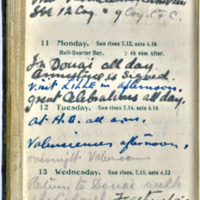 See 12 Coy. & 9 Coy. C.F.C.
11 Monday. Sun rises 7.12, sets 4.16
Half-Quarter Day. 4h 46m After.
In Douai all day.
Armistice is signed.
Visit LILLE in afternoon.
Great Celebrations all day.
12 Tuesday. Sun rises 7.14, sets 4.14
At H.Q. all am.
Valenciennes afternoon,
overnight Valenciennes
13 Wednesday. Sun rises
Return to Douai